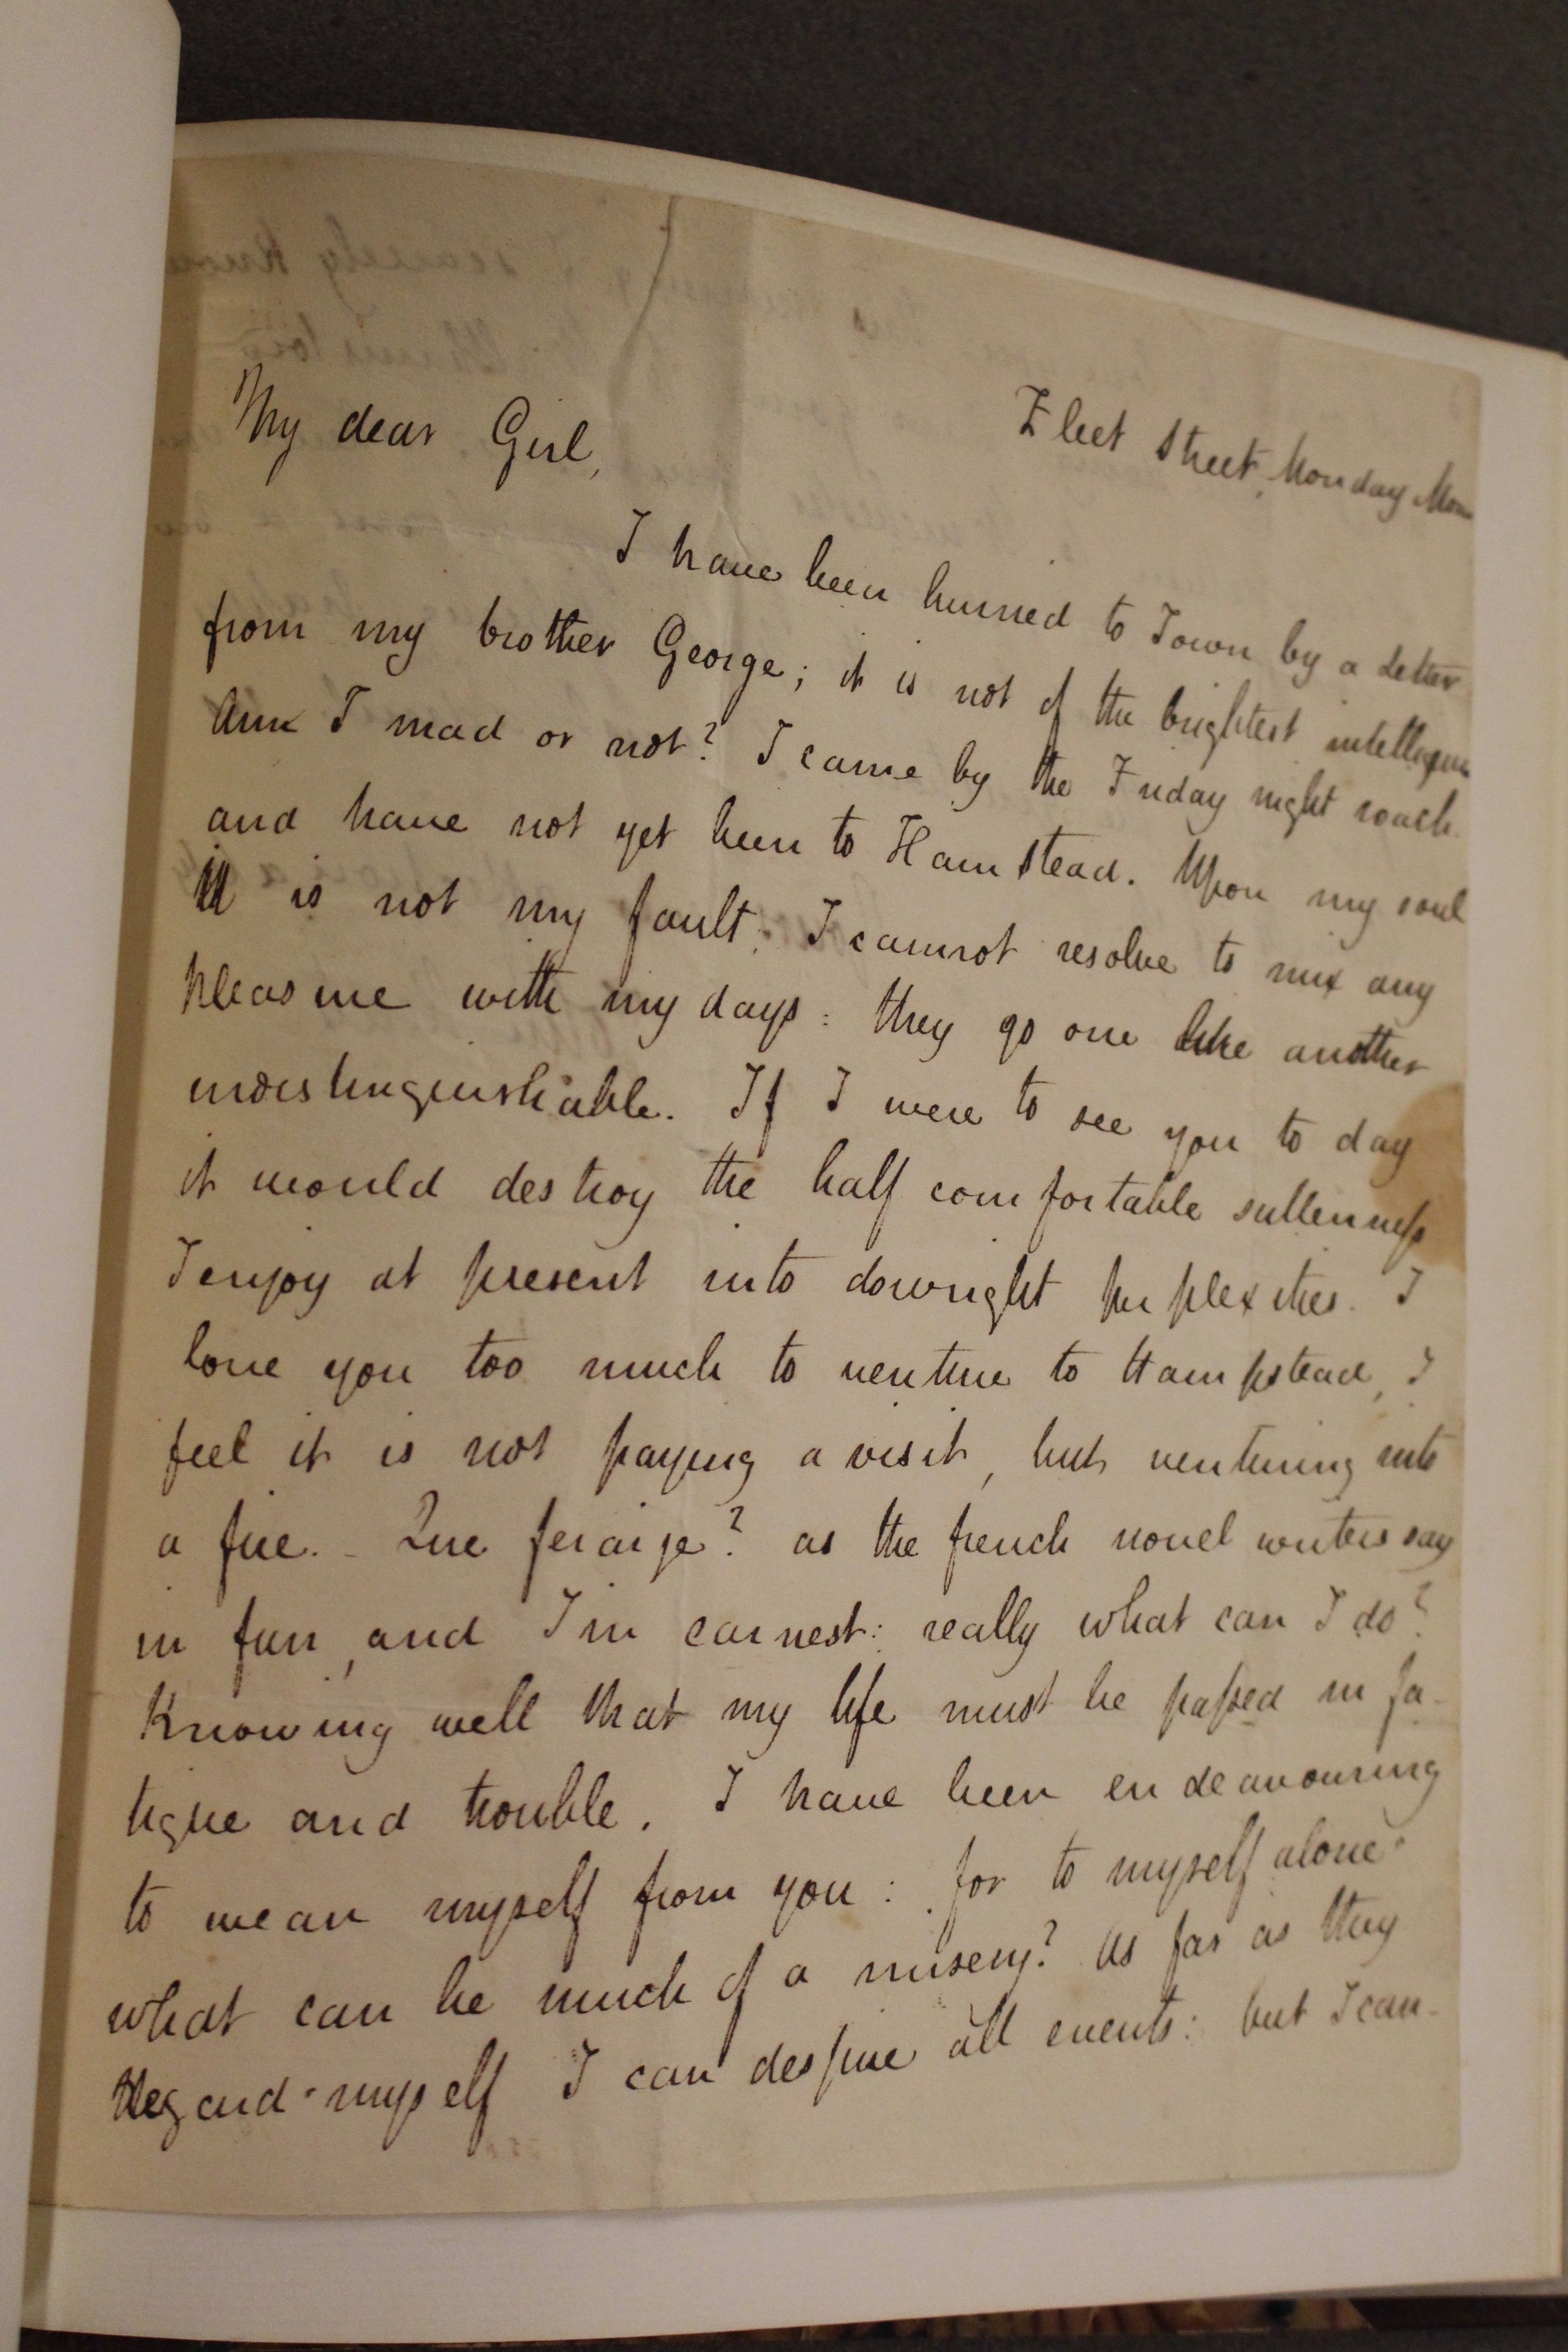 Fleet Street, Monday Morn
My dear Girl,
I have been hurried to Town by a Letter
from my brother George; it is not of the brightest intelligen
Am I mad or not? I came by the Friday night coach
and have not yet been to Hamstead. Upon my soul
it is not my fault. I cannot resolve to mix any
pleasure with my days: they go one like another
undistinguishable. If I were to see you to day
it would destroy the half comfortable sullenness
I enjoy at present into dowright perplexities. I
love you too much to venture to Hampstead, I
feel it is not paying a visit, but venturing into
a fire. - Que feraije? as the french novel writers say
in fun, and I in earnest: really what can I do?
Knowing well that my life must be passed in fa-
tigue and trouble. I have been endeavouring
to wean myself from you: for to myself alone
what can be much of a misery? As far as they
regard myself I can despise all events: but I can-